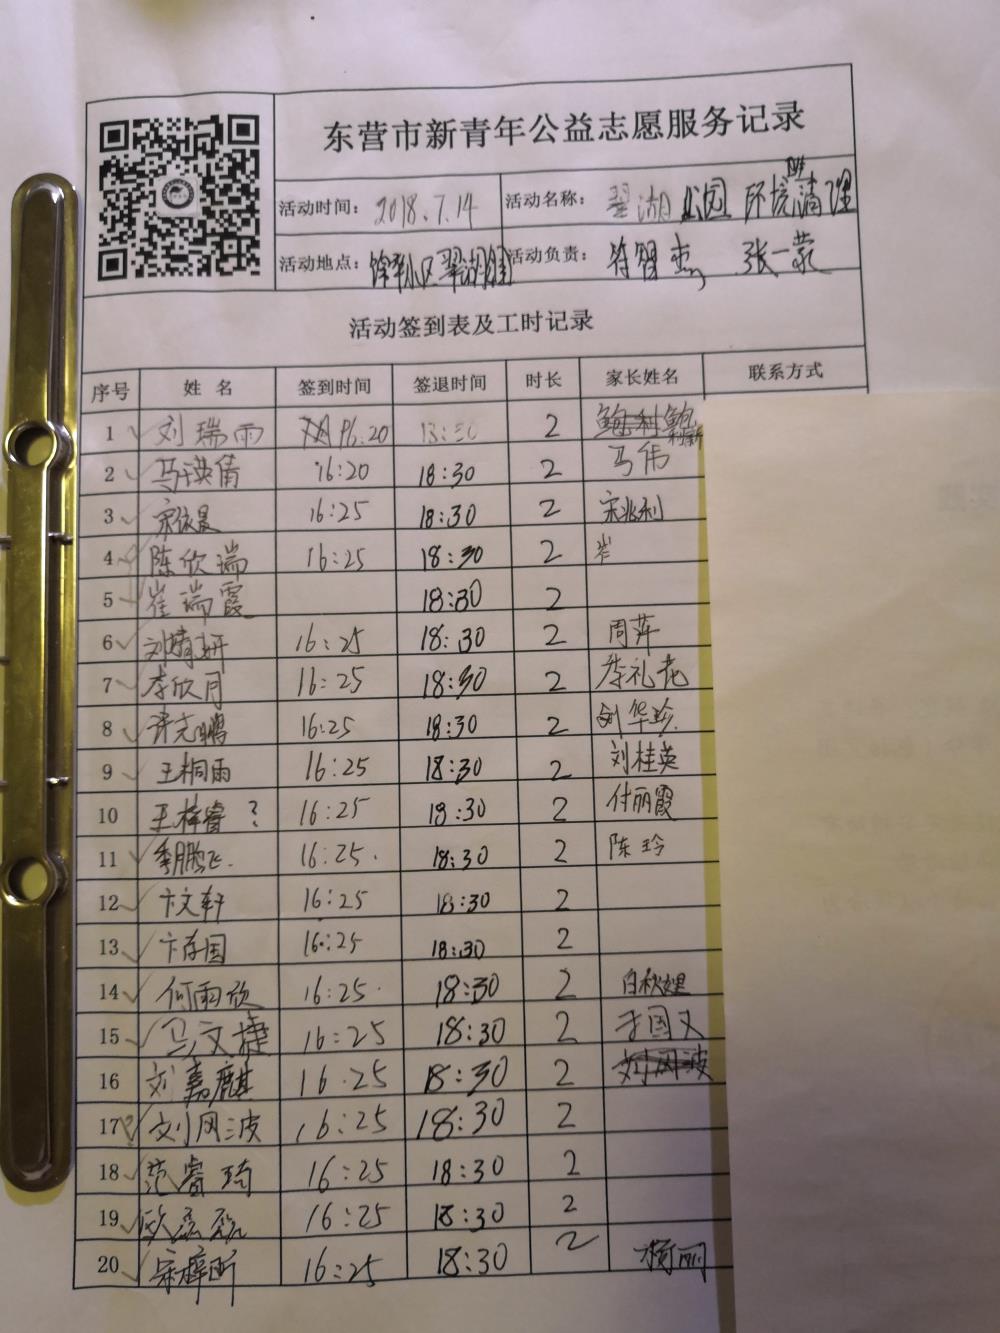 东营市新青年公益志愿服务记录
活动时间： 2018.7.14 活动名称： 翠湖公园 环境清理
活动地点： 小区翠湖 活动负责： 符智 张一
活动签到表及工时记录
序号 姓名 签到时间 签退时间 时长 家长姓名 联系方式
1 刘瑞雨 16:20 18:30 2 鲍利新
2 马瑛倩 16:20 18:30 2 马伟
3 宋依晨 16:25 18:30 2 宋兆利
4 陈欣瑞 16:25 18:30 2 崔
5 崔瑞霞 18:30 2
6 刘婧妍 16:25 18:30 2 周萍
7 李欣月 16:25 18:30 2 李礼花
8 许志鹏 16:25 18:30 2 刘华珍
9 王桐雨 16:25 18:30 2 刘桂英
10 王梓睿 ? 16:25 18:30 2 付丽霞
11 季鹏飞 16:25 18:30 2 陈玲
12 卞文轩 16:25 18:30 2
13 卞存国 16:25 18:30 2
14 何雨欣 16:25 18:30 2
15 马文捷 16:25 18:30 2 国义
16 刘嘉麒 16:25 18:30 2 刘风波
17 刘风波 16:25 18:30 2
18 范睿琦 16:25 18:30 2
19 16:25 18:30 2
20 宋梓昕 16:25 18:30 2 丽